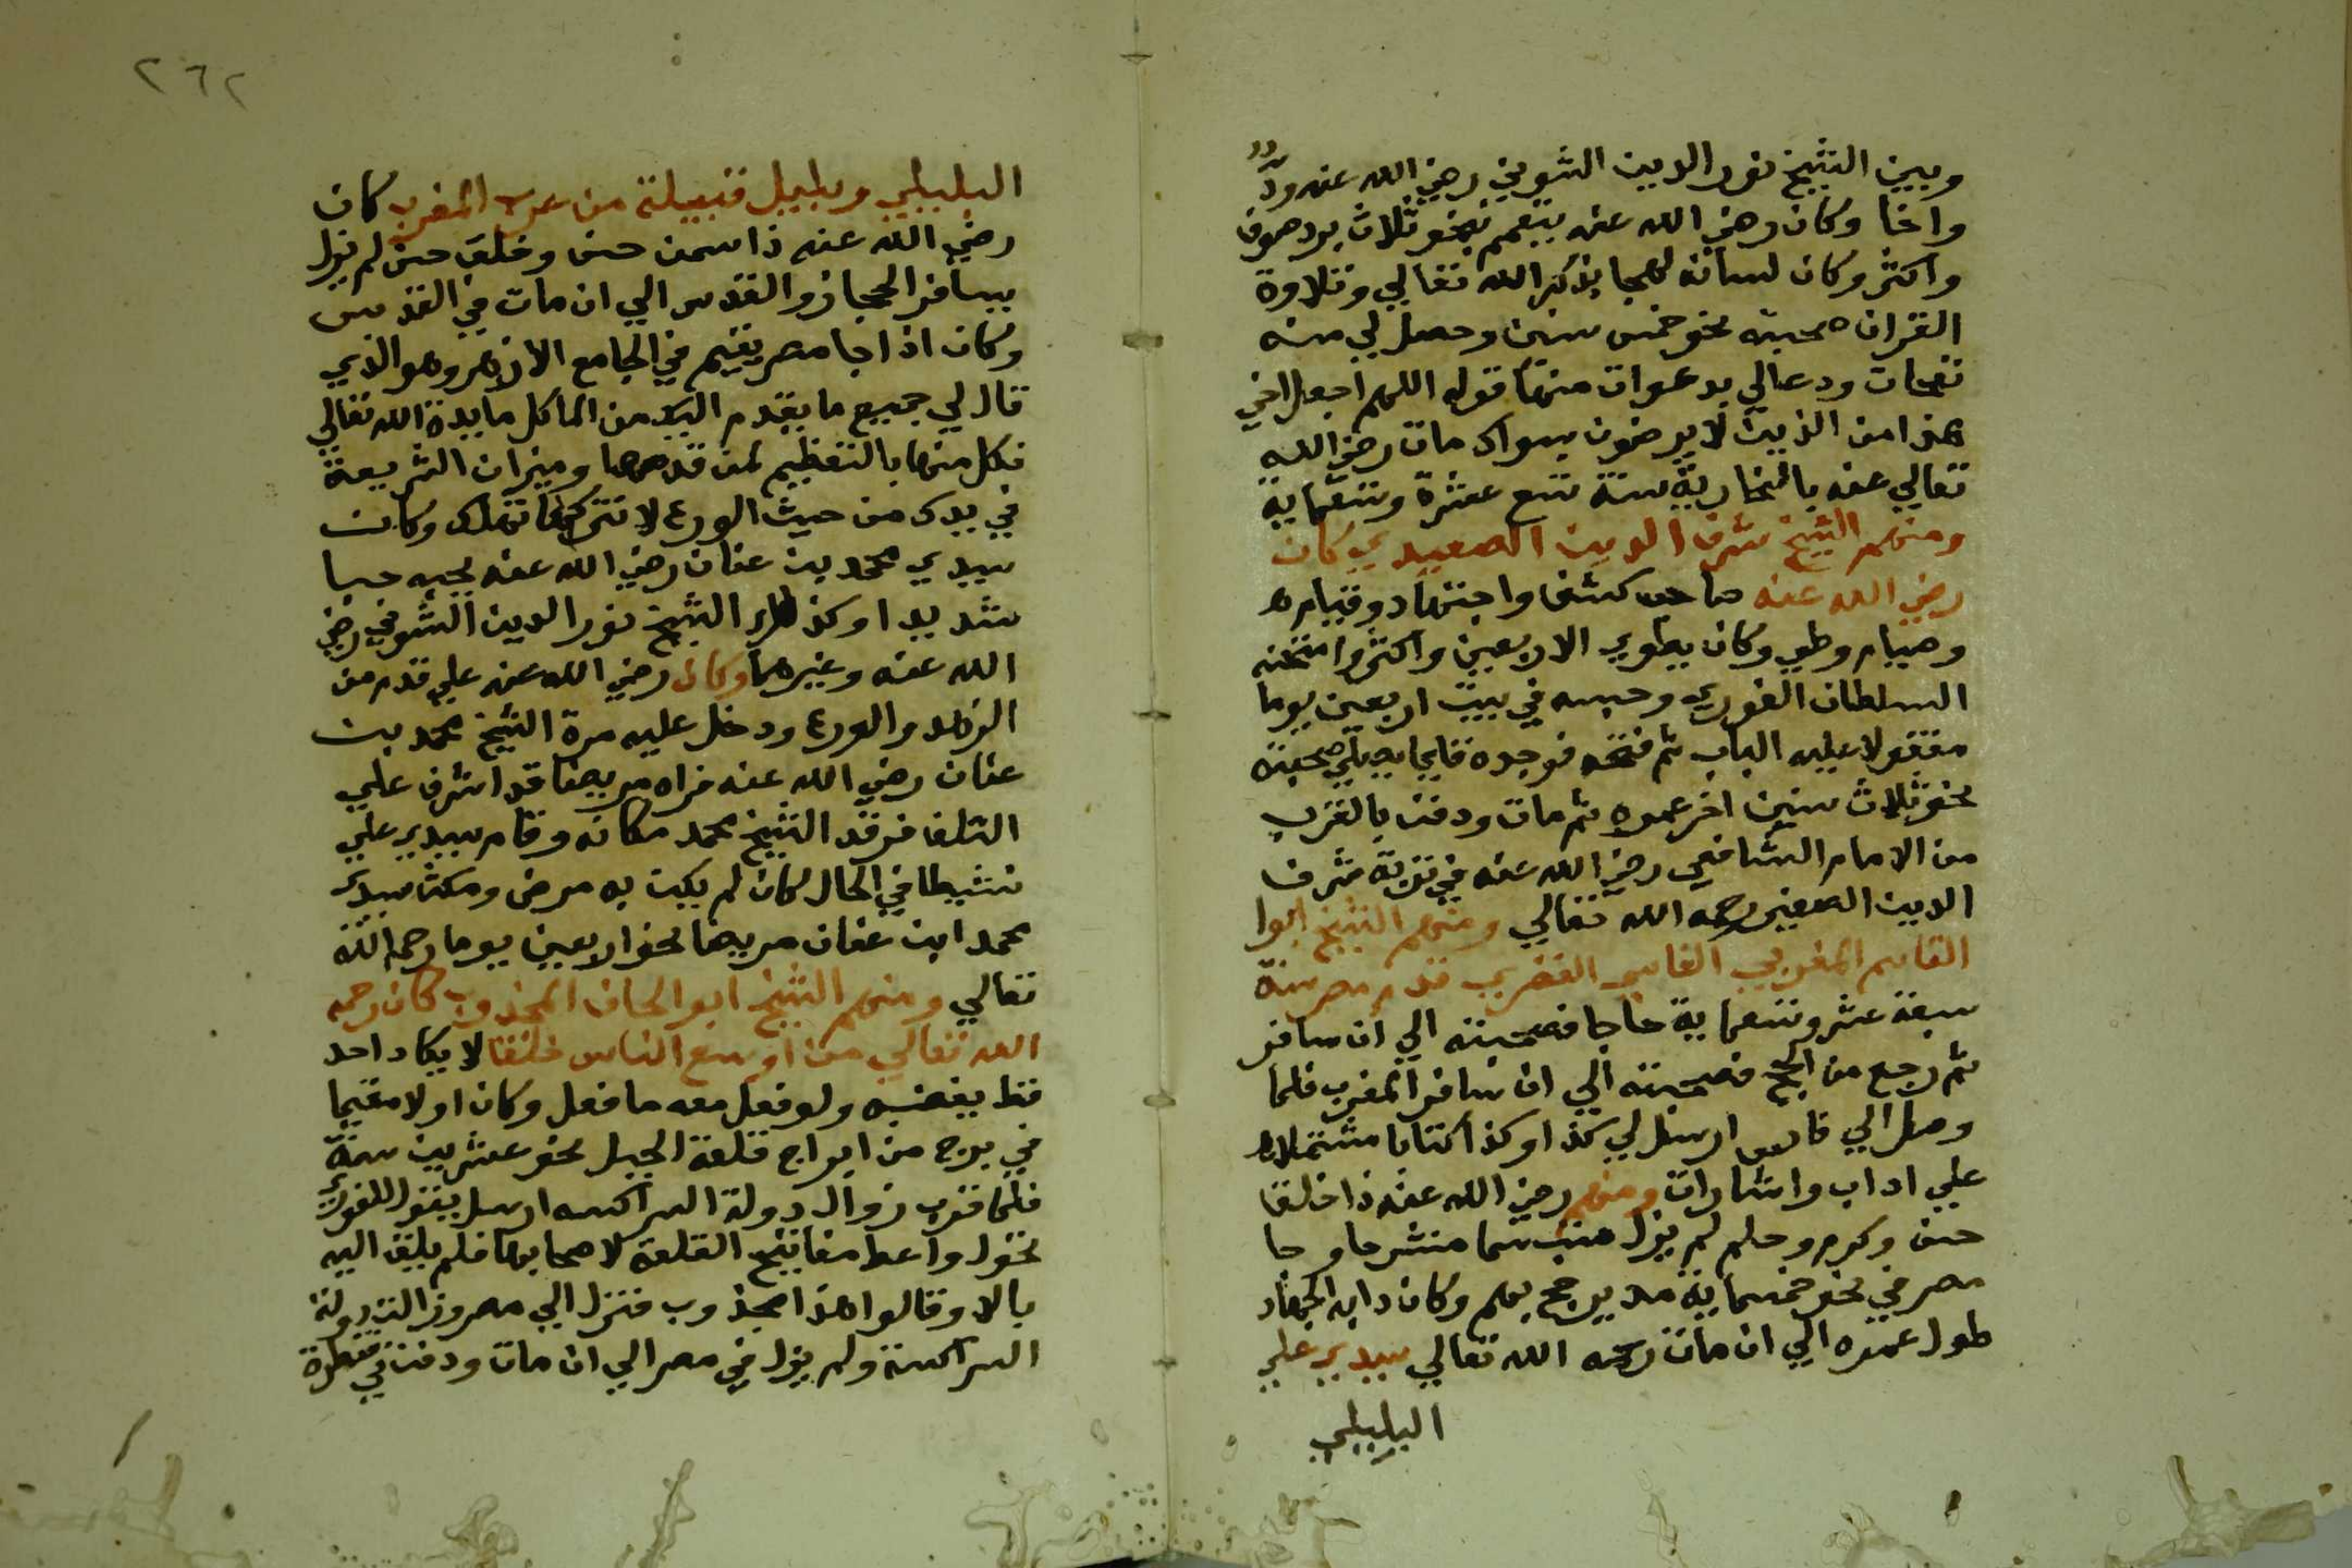 وبين الشيخ نور الدين الشوني رضي الله عنه ودّ
واخا وكان رضي الله عنه يتعمم بنحو ثلاث برد صوف
واكثر وكان لسانه لهجا بذكر الله تعالي وتلاوة
القران صحبته نحو خمس سنين وحصل لي منه
نفحات ودعا لي بدعوات منها قوله اللهم اجعل اخي
هذا من الذين لا يرضون بسواك مات رضي الله
تعالي عنه بالنحارية سنة تسع عشرة وتسعماية
ومنهم الشيخ شرف الدين الصعيدي كان
رضي الله عنه صاحب كشف واجتهاد وقيام
وصيام وطي وكان يطوي الاربعين واكثر وامتحنه
السلطان الغوري وحبسه في بيت اربعين يوما
مقفولا عليه الباب ثم فتحه فوجده قايما يصلي صحبته
نحو ثلاث سنين اخر عمره ثم مات ودفن بالقرب
من الامام الشافعي رضي الله عنه في تربة شرف
الدين الصغير رحمه الله تعالي ومنهم الشيخ ابوا
القاسم المغربي الفاسي القصري قدم مصر سنة
سبعة عشر وتسعماية حاجا فصحبته الي ان سافر
ثم رجع من الحج فصحبته الي ان سافر المغرب فلما
وصل الي فاس ارسل لي كذا وكذا كتابا مشتملا
علي اداب واشارات ومنهم رضي الله عنه ذا خلق
حسن وكرم وحلم لم يزل متبسما منشرحا وجا
مصر في نحو خمسماية مريد يرجح بهم وكان دابه الجهاد
طول عمره الي ان مات رحمه الله تعالي سيدي علي
البلبلي
٢٦٢
البلبلي وبلبل قبيلة من عرب المغرب كان
رضي الله عنه ذا سمت حسن وخلق حسن لم يزل
يسافر الحجاز والقدس الي ان مات في القدس
وكان اذا جا مصر يقيم في الجامع الازهر وهو الذي
قال لي جميع ما يقدم اليك من الماكل مايدة الله تعالي
فكل منها بالتعظيم لمن قدمها وميزان الشريعة
في يدك من حيث الورع لا تتركها تهلك وكان
سيدي محمد بن عنان رضي الله عنه يحبه حبا
شديدا وكذلك الشيخ نور الدين الشوني رضي
الله عنه وغيرهما وكان رضي الله عنه علي قدم من
الزهد والورع ودخل عليه مرة الشيخ محمد بن
عنان رضي الله عنه فراه مريضا قد اشرف علي
التلف فرقد الشيخ محمد مكانه وقام سيدي علي
نشيطا في الحال كان لم يكن به مرض ومكث سيدي
محمد ابن عنان مريضا نحو اربعين يوما رحمه الله
تعالي ومنهم الشيخ ابو الخاف المجذوب كان رحمه
الله تعالي من اوسع الناس خلقا لا يكاد احد
قط يغضبه ولو فعل معه ما فعل وكان اولا مقيما
في برج من ابراج قلعة الجبل نحو عشرين سنة
فلما قرب زوال دولة الجراكسه ارسل يقول للغوري
تحول واعط مفاتيح القلعة لاصحابها فلم يلق اليه
بالا وقالوا هذا مجذوب فنزل الي مصر وزالت دولة
الجراكسة ولم يزل في مصر الي ان مات ودفن في قنطرة